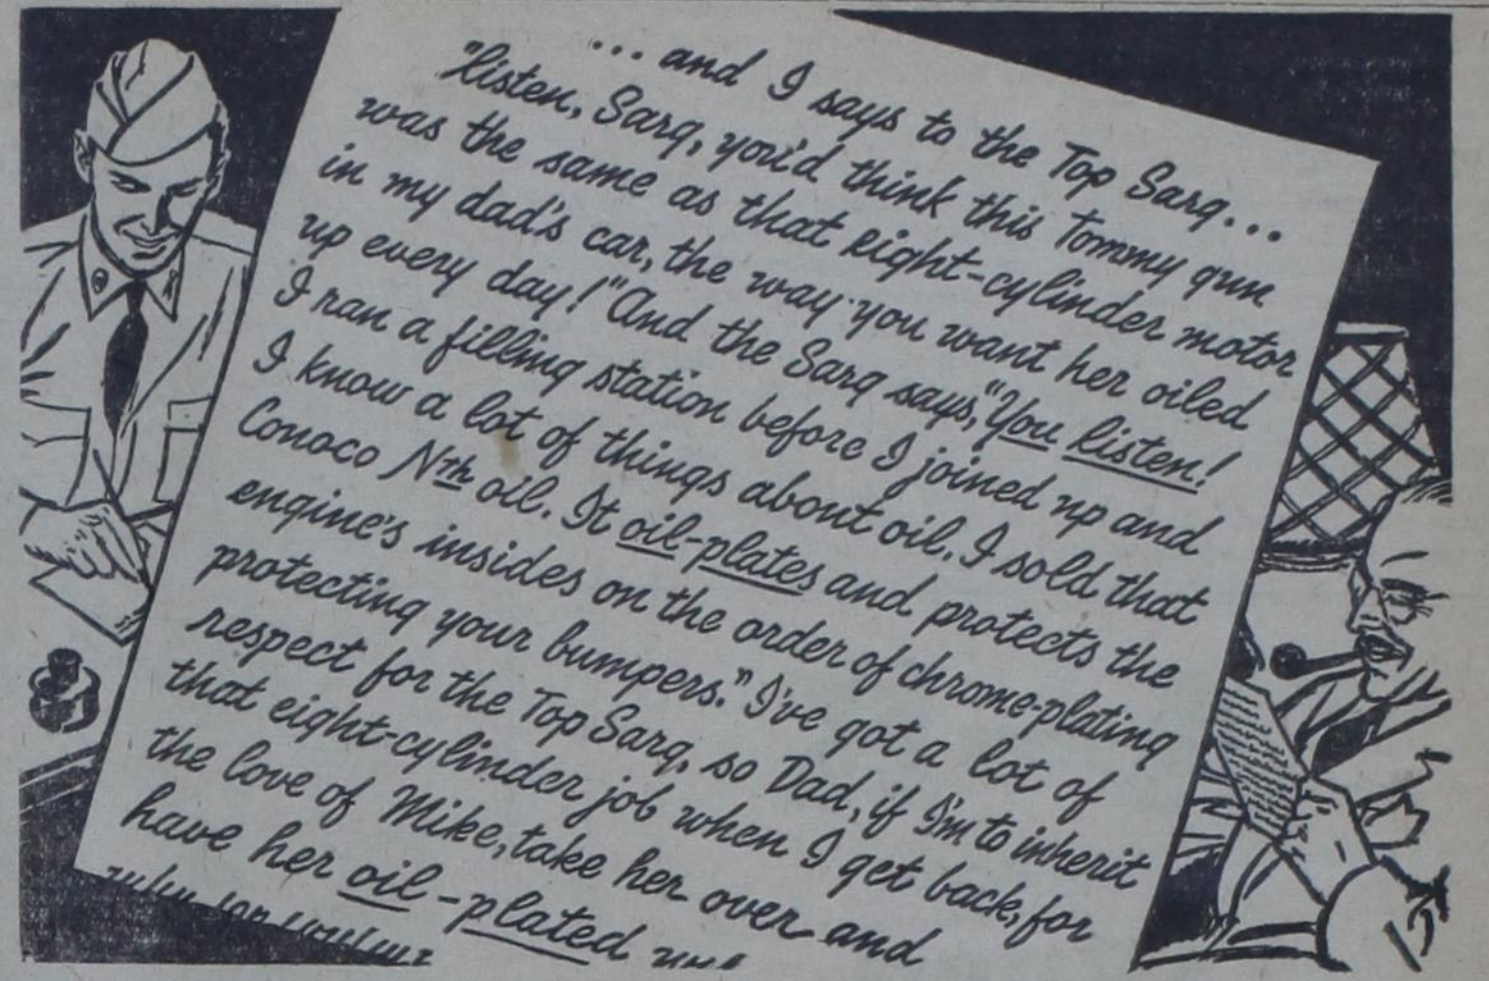 ... and I says to the Top Sarg...
"Listen, Sarg, you'd think this Tommy gun
was the same as that eight-cylinder motor
in my dad's car, the way you want her oiled
up every day!" And the Sarg says, "You listen!
I ran a filling station before I joined up and
I know a lot of things about oil. I sold that
Conoco Nth oil. It oil-plates and protects the
engine's insides on the order of chrome-plating
protecting your bumpers." I've got a lot of
respect for the Top Sarg, so Dad, if I'm to inherit
that eight-cylinder job when I get back, for
the love of Mike, take her over and
have her oil-plated